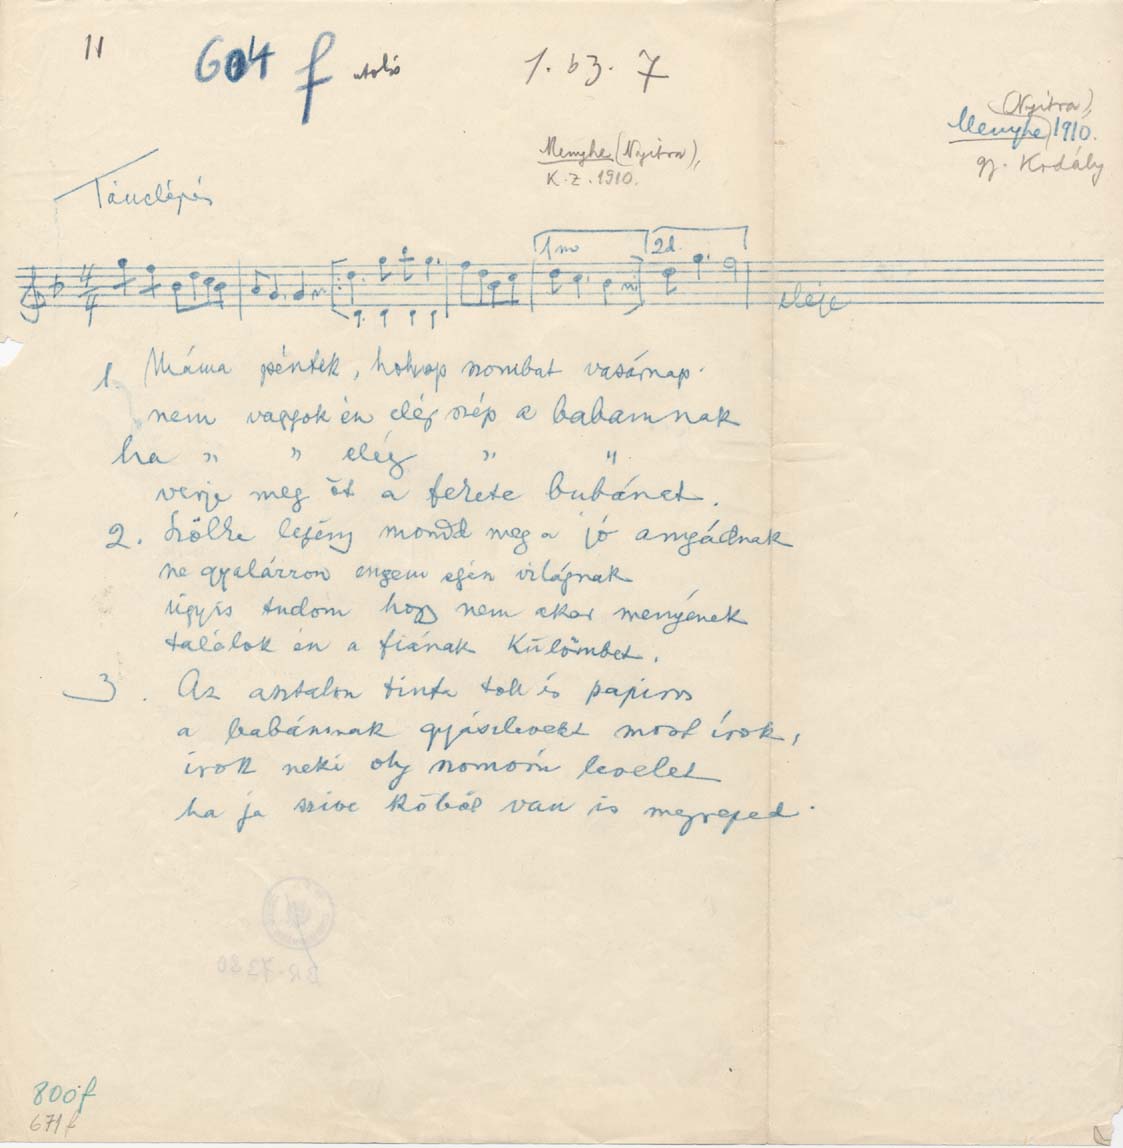 11
604 f utolsó 1. b3. 7
(Nyitra),
Menyhe 1910.
gy. Kodály
Menyhe (Nyitra),
K. Z. 1910.
Tánclépés
4/4 1mo 2d.
eléje
1. Máma péntek, holnap szombat vasárnap.
nem vagyok én elég szép a babámnak
ha " " elég " "
verje meg őt a fekete bubánet.
2. Szőke legény mondd meg a jó anyádnak
ne gyalázzon engem egén világnak
úgyis tudom hogy nem akar menyének
találok én a fiának külömbet.
3. Az asztalon tinta toll és papiros
a babámnak gyászlevelet most írok,
írok neki oly szomorú levelet
ha ja szive kőből van is megreped.
BR-7230
800f
671f